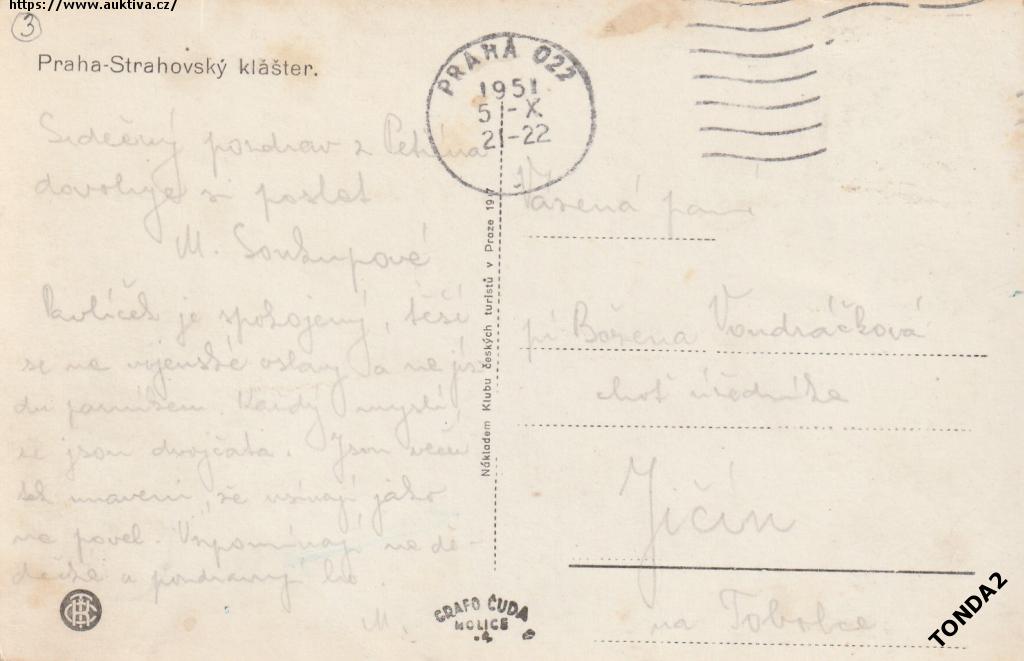 https://www.auktiva.cz/
3
Praha-Strahovský klášter.
PRAHA 022
1951
5-X
21-22
Srdečný pozdrav z Petřína
dovoluje si poslat
M. Soukupová
Pavlíček je spokojený, těší
se na vojenské oslavy a na jíz-
du parníkem. Každý myslí,
že jsou dvojčata. Jsou večer
tak unaveni, že usínají jako
na povel. Vzpomínají na dě-
dečka a pozdravují ho.
M.
Nákladem Klubu českých turistů v Praze 1947
Vážená paní
pí Božena Vondráčková
choť úředníka
Jičín
na Tobolce.
GRAFO ČUDA
HOLICE
TONDA2